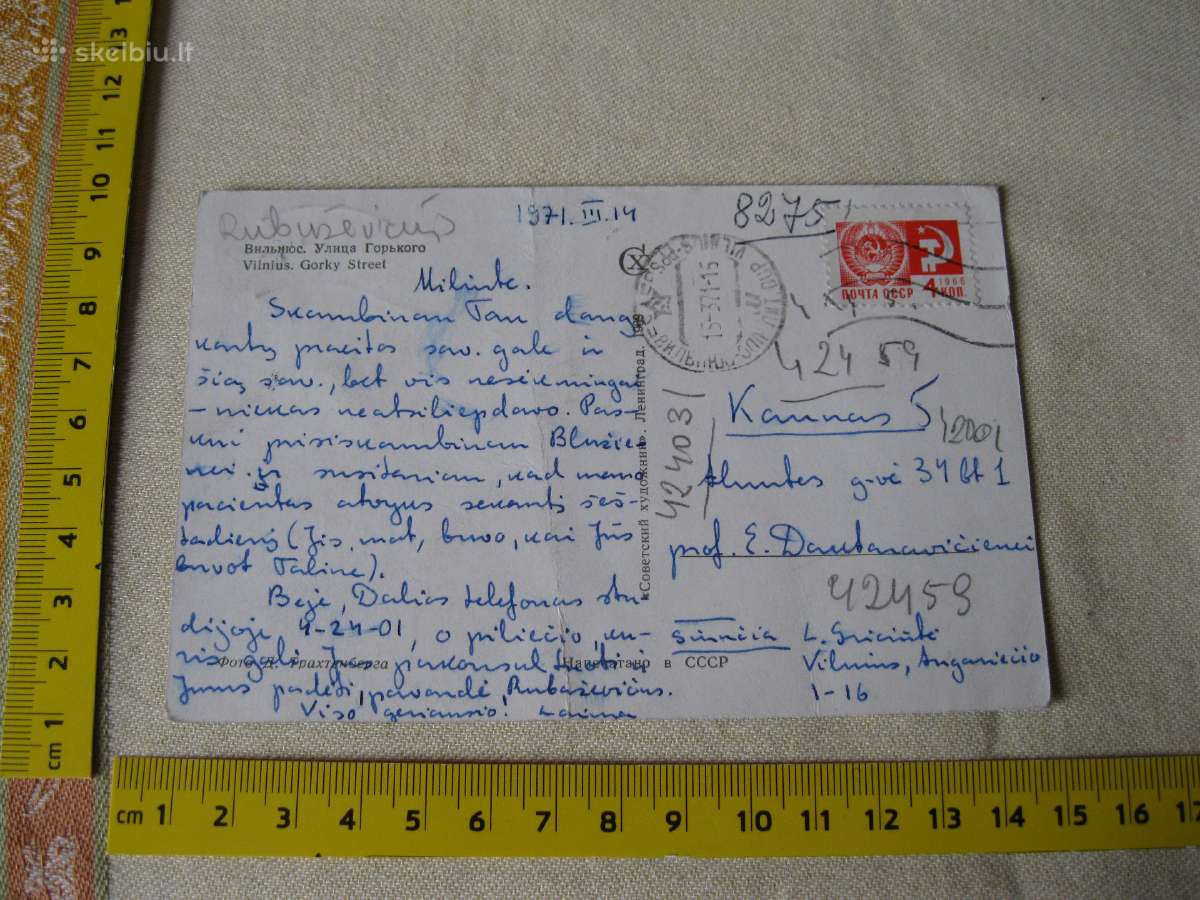 skelbiu.lt
Rubaševičius
1971.III.14
8275
Вильнюс. Улица Горького
Vilnius. Gorky Street
Milinte.
Skambinau Tau daug
kartų praeitos sav. gale ir
šią sav., bet vis nesėkmingai
– niekas neatsiliepdavo. Pas-
kui prisiskambinau Blužie-
nei ir susitariau, kad mano
pacientas atvyks sekantį šeš-
tadienį (Jis, mat, buvo, kai Jūs
buvot Taline).
Beje, Dalios telefonas stu-
dijoje 4-24-01, o piliečio, ku-
ris gali Jus pakonsultuoti ir
Jums padėti, pavardė, Rubaševičius.
Viso geriausio! Laima
Фото Д. Трахтенберга
Напечатано в СССР
«Советский художник». Ленинград. 1969
VILNIUS-PPS
15-371-15
ПОЧТА СССР
1966
4 КОП.
42459
42403
Kaunas 5
42001
g-vė 34 bt 1
prof. E. Dautaravičienei
42459
siunčia L. Griciūtė
Vilnius, Angariečio
1-16
cm 1 2 3 4 5 6 7 8 9 10 11 12 13
cm 1 2 3 4 5 6 7 8 9 10 11 12 13 14 15 16 17